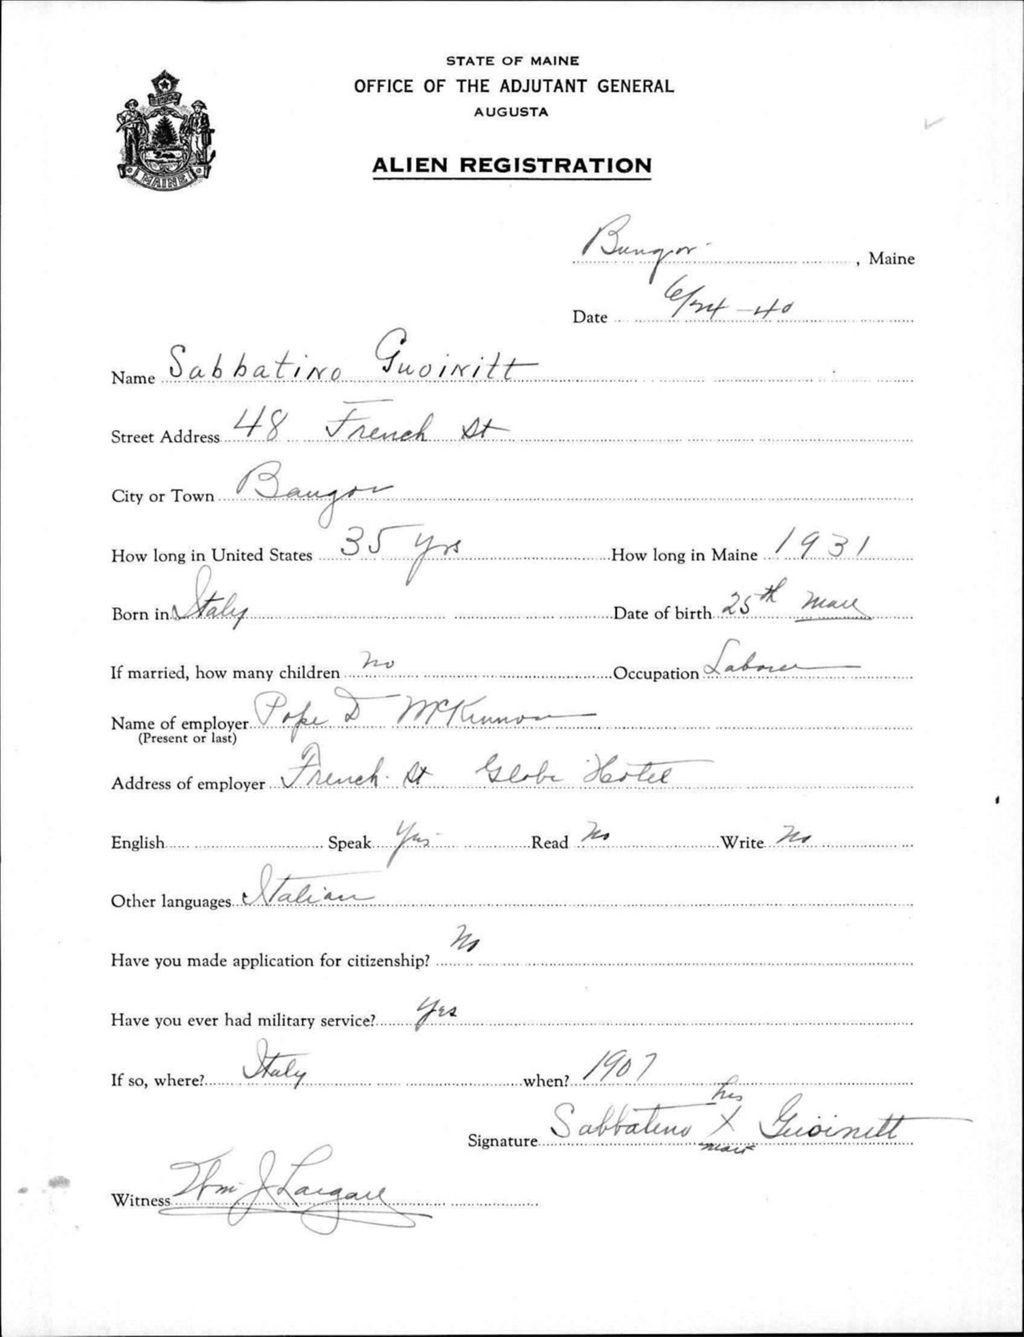 STATE OF MAINE
OFFICE OF THE ADJUTANT GENERAL
AUGUSTA
ALIEN REGISTRATION
MAINE
Bangor, Maine
Date 6/24-40
Name Sabbatino Guoinitt
Street Address 48 French St
City or Town Bangor
How long in United States 35 yrs How long in Maine 1931
Born in Italy Date of birth 25th
If married, how many children no Occupation Laborer
Name of employer Pope D McKinnon
(Present or last)
Address of employer French St Globe Hotel
English Speak Yes Read No Write No
Other languages Italian
Have you made application for citizenship? No
Have you ever had military service? Yes
If so, where? Italy when? 1907
his
Signature Sabbatino X Guoinett
mark
Witness Wm J